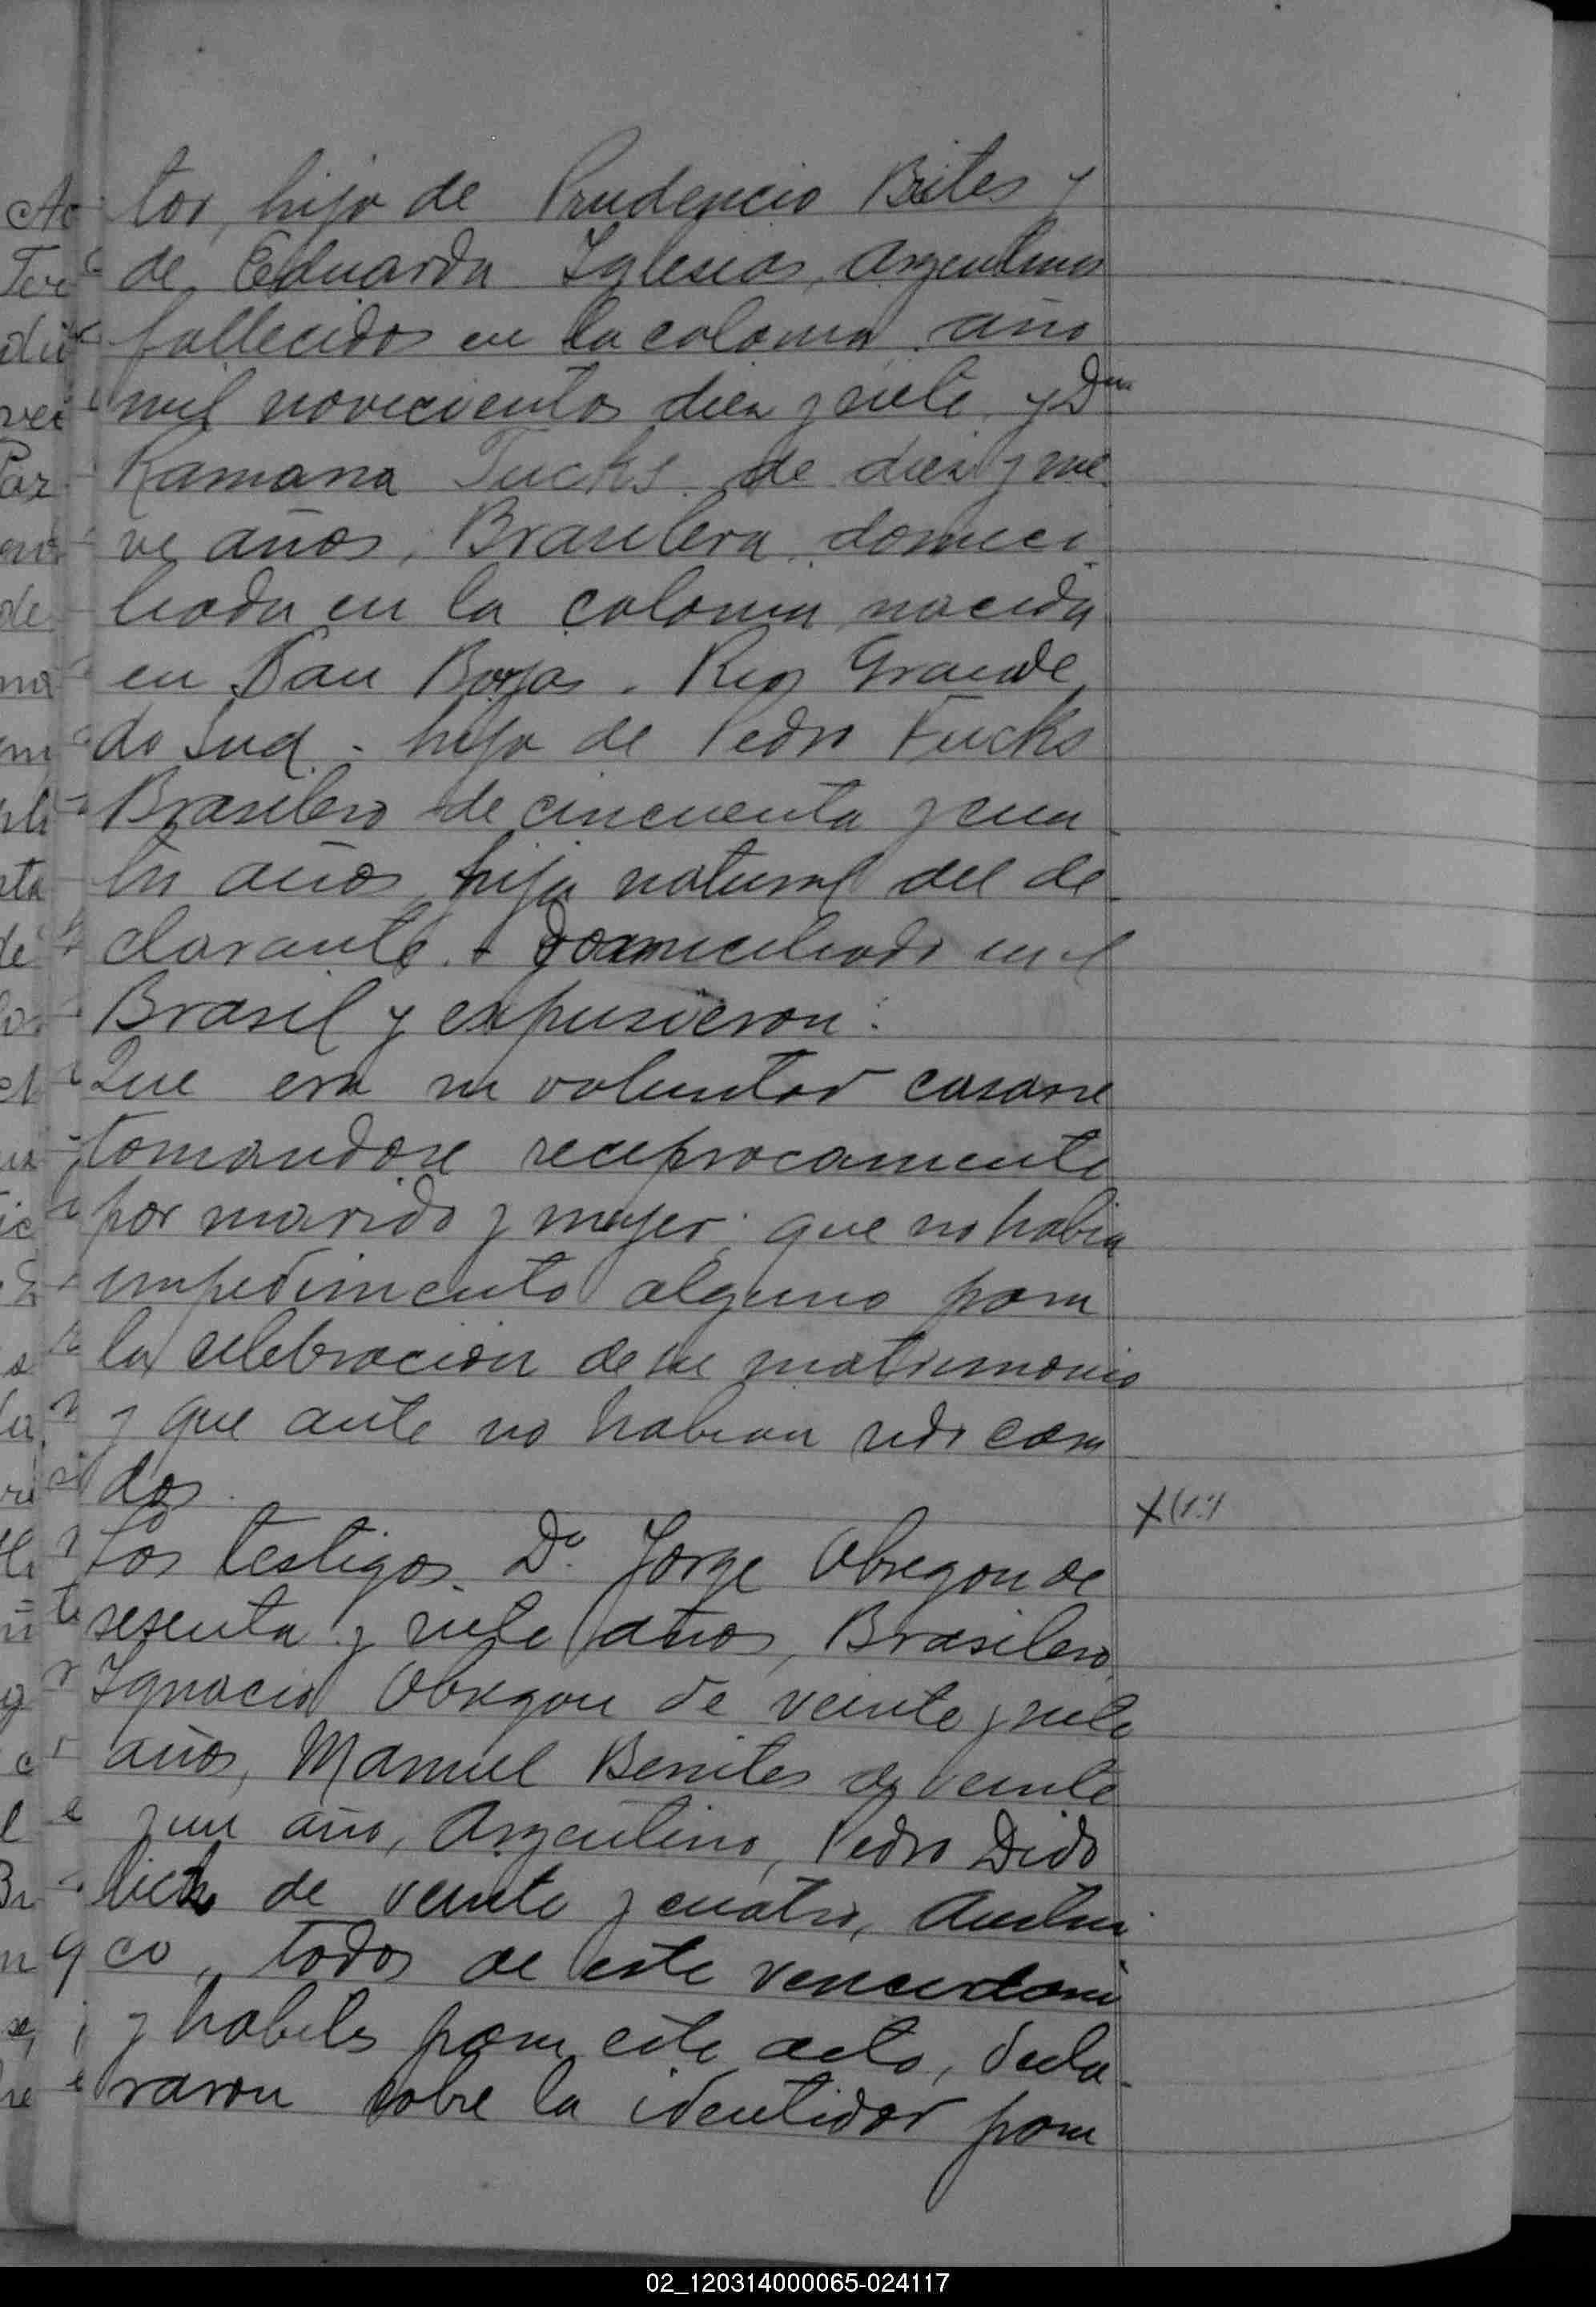 tor, hijo de Prudencio Brites y
de Eduarda Iglesias, argentinos
fallecidos en la colonia año
mil novecientos diez y siete y Dña
Ramona Fucks de diez y nue
ve años, Brasilera domici
liada en la colonia nacida
en San Borja. Rio Grande
do Sud. hija de Pedro Fucks
Brasilero de cincuenta y cua
tro años, hija natural del de
clarante. domiciliado en el
Brasil y expusieron:
Que era su voluntad casarse
tomandose reciprocamente
por marido y mujer; que no habia
impedimento alguno para
la celebracion de su matrimonio
y que ante no habian sido casa
dos.
Los testigos Dn. Jorge Obregon de
sesenta y siete años, Brasilero,
Ignacio Obregon de veinte y siete
años, Manuel Benites de veinte
y un año, Argentino, Pedro Dido
lich de veinte y cuatro, Austria
co, todos de este vencerdario
y habiles para este acto, decla
raron sobre la identidad para
02_120314000065-024117